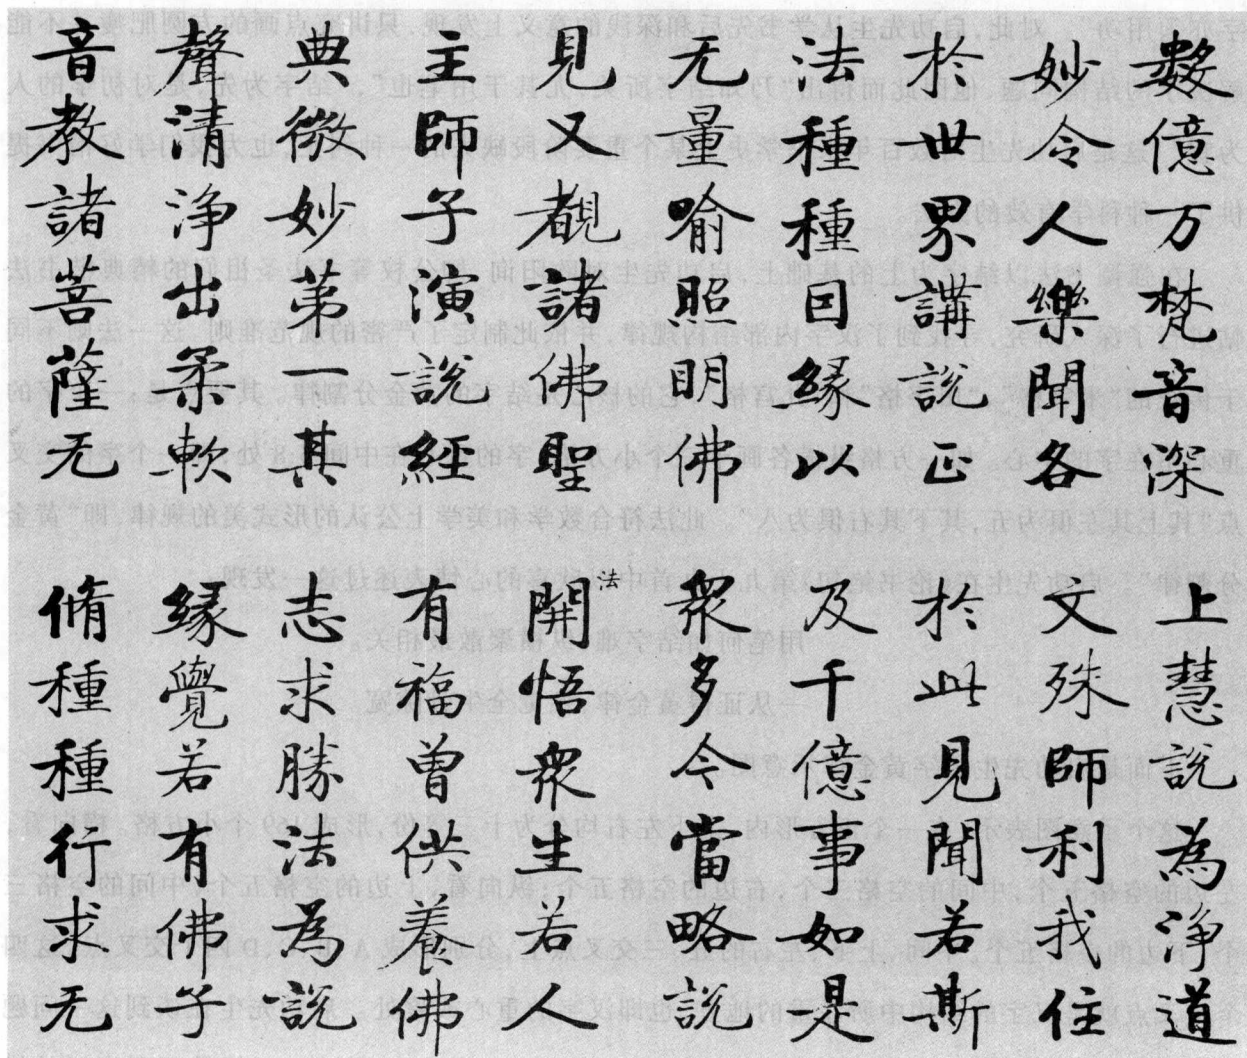 數億万梵音深
妙令人樂聞各
於世界講說正
法種種因緣以
无量喻照明佛
見又覩諸佛聖
主師子演說經
典微妙第一其
聲清淨出柔軟
音教諸菩薩无
上慧說為淨道
文殊師利我住
於此見聞若斯
及千億事如是
衆多今當略說
法開悟衆生若人
有福曾供養佛
志求勝法為說
緣覺若有佛子
脩種種行求无